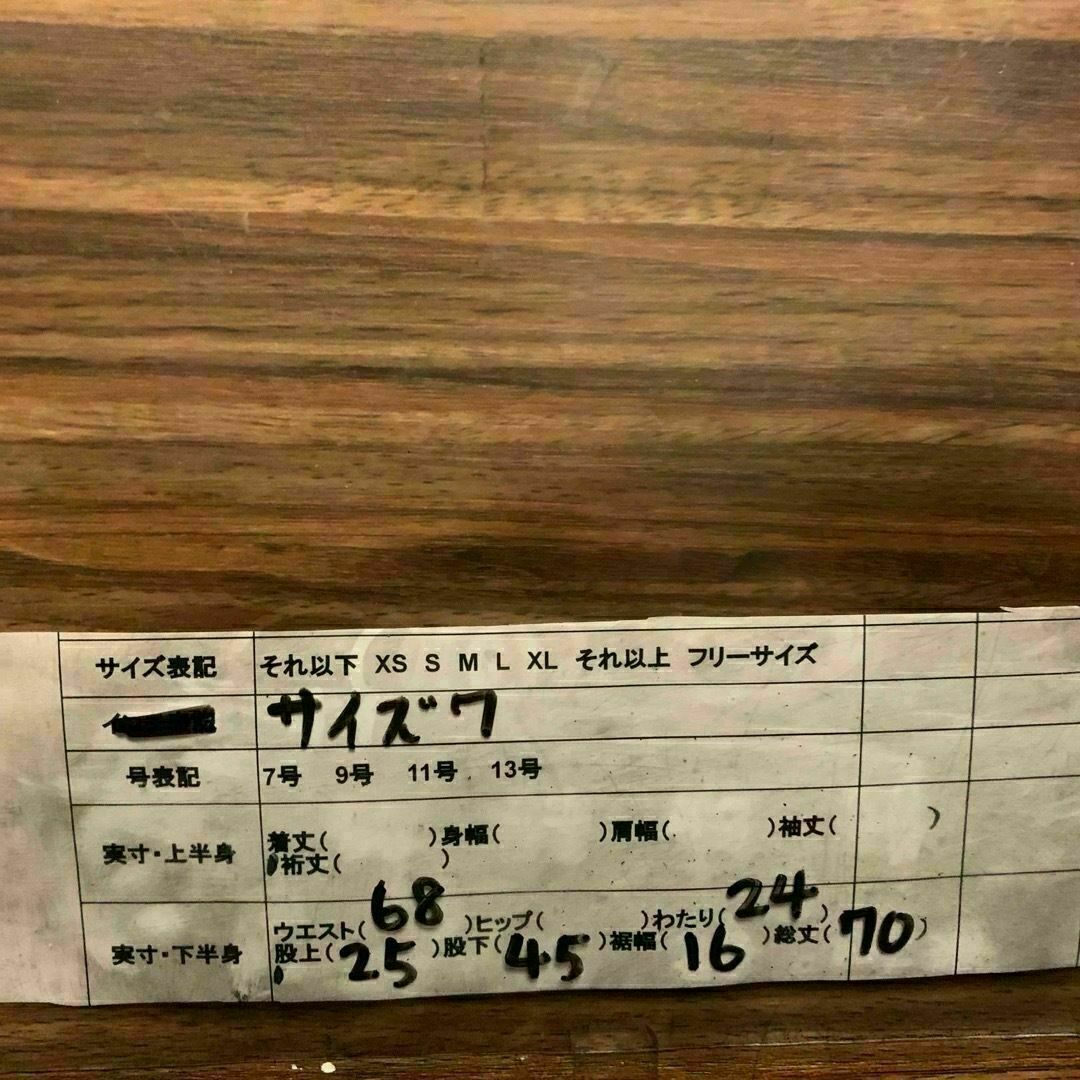 サイズ表記 それ以下 XS S M L XL それ以上 フリーサイズ
サイズ7
号表記 7号 9号 11号 13号
実寸・上半身 着丈( )身幅( )肩幅( )袖丈( )
裄丈( )
実寸・下半身 ウエスト(68)ヒップ( )わたり(24)
股上(25)股下(45)裾幅(16)総丈(70)